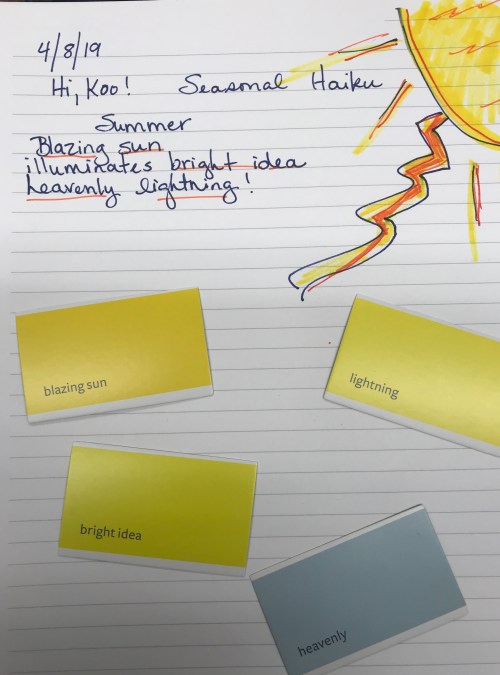 4/8/19
Hi, Koo! Seasonal Haiku
Summer
Blazing sun
illuminates bright idea
heavenly lightning!
blazing sun
lightning
bright idea
heavenly